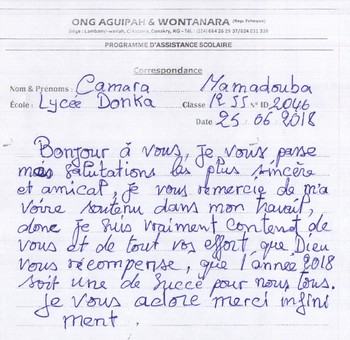 ONG AGUIPAH & WONTANARA (Rep. Tchèque)
Siège : Lambanyi-wariah, C/ Ratoma, Conakry, RG - Tél. : (224) 664 26 29 37/624 031 339
PROGRAMME D'ASSISTANCE SCOLAIRE
Correspondance
Nom & Prénoms : Camara Mamadouba
École : Lycée Donka Classe 12 SS N° ID 2046
Date 25 06 2018
Bonjour à vous, Je vous passe
mes salutations les plus sincère
et amical, je vous remercie de m'a
voire soutenu dans mon travail,
donc je suis vraiment content de
vous et de tout vos effort, que Dieu
vous récompense, que l'année 2018
soit une de succé pour nous tous.
Je vous adore merci infini
ment.